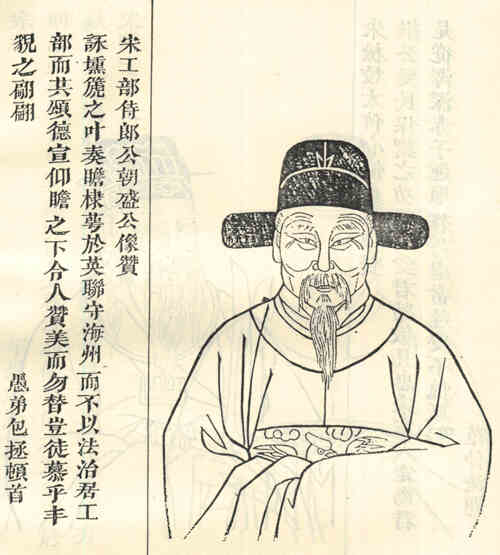 宋工部侍郎公朝盛公像贊
詠壎篪之叶奏瞻棣萼於英聯守海州而不以法治居工
部而共頌德宣仰瞻之下令人贊美而勿替豈徒慕乎丰
貌之翩翩
愚弟包拯頓首